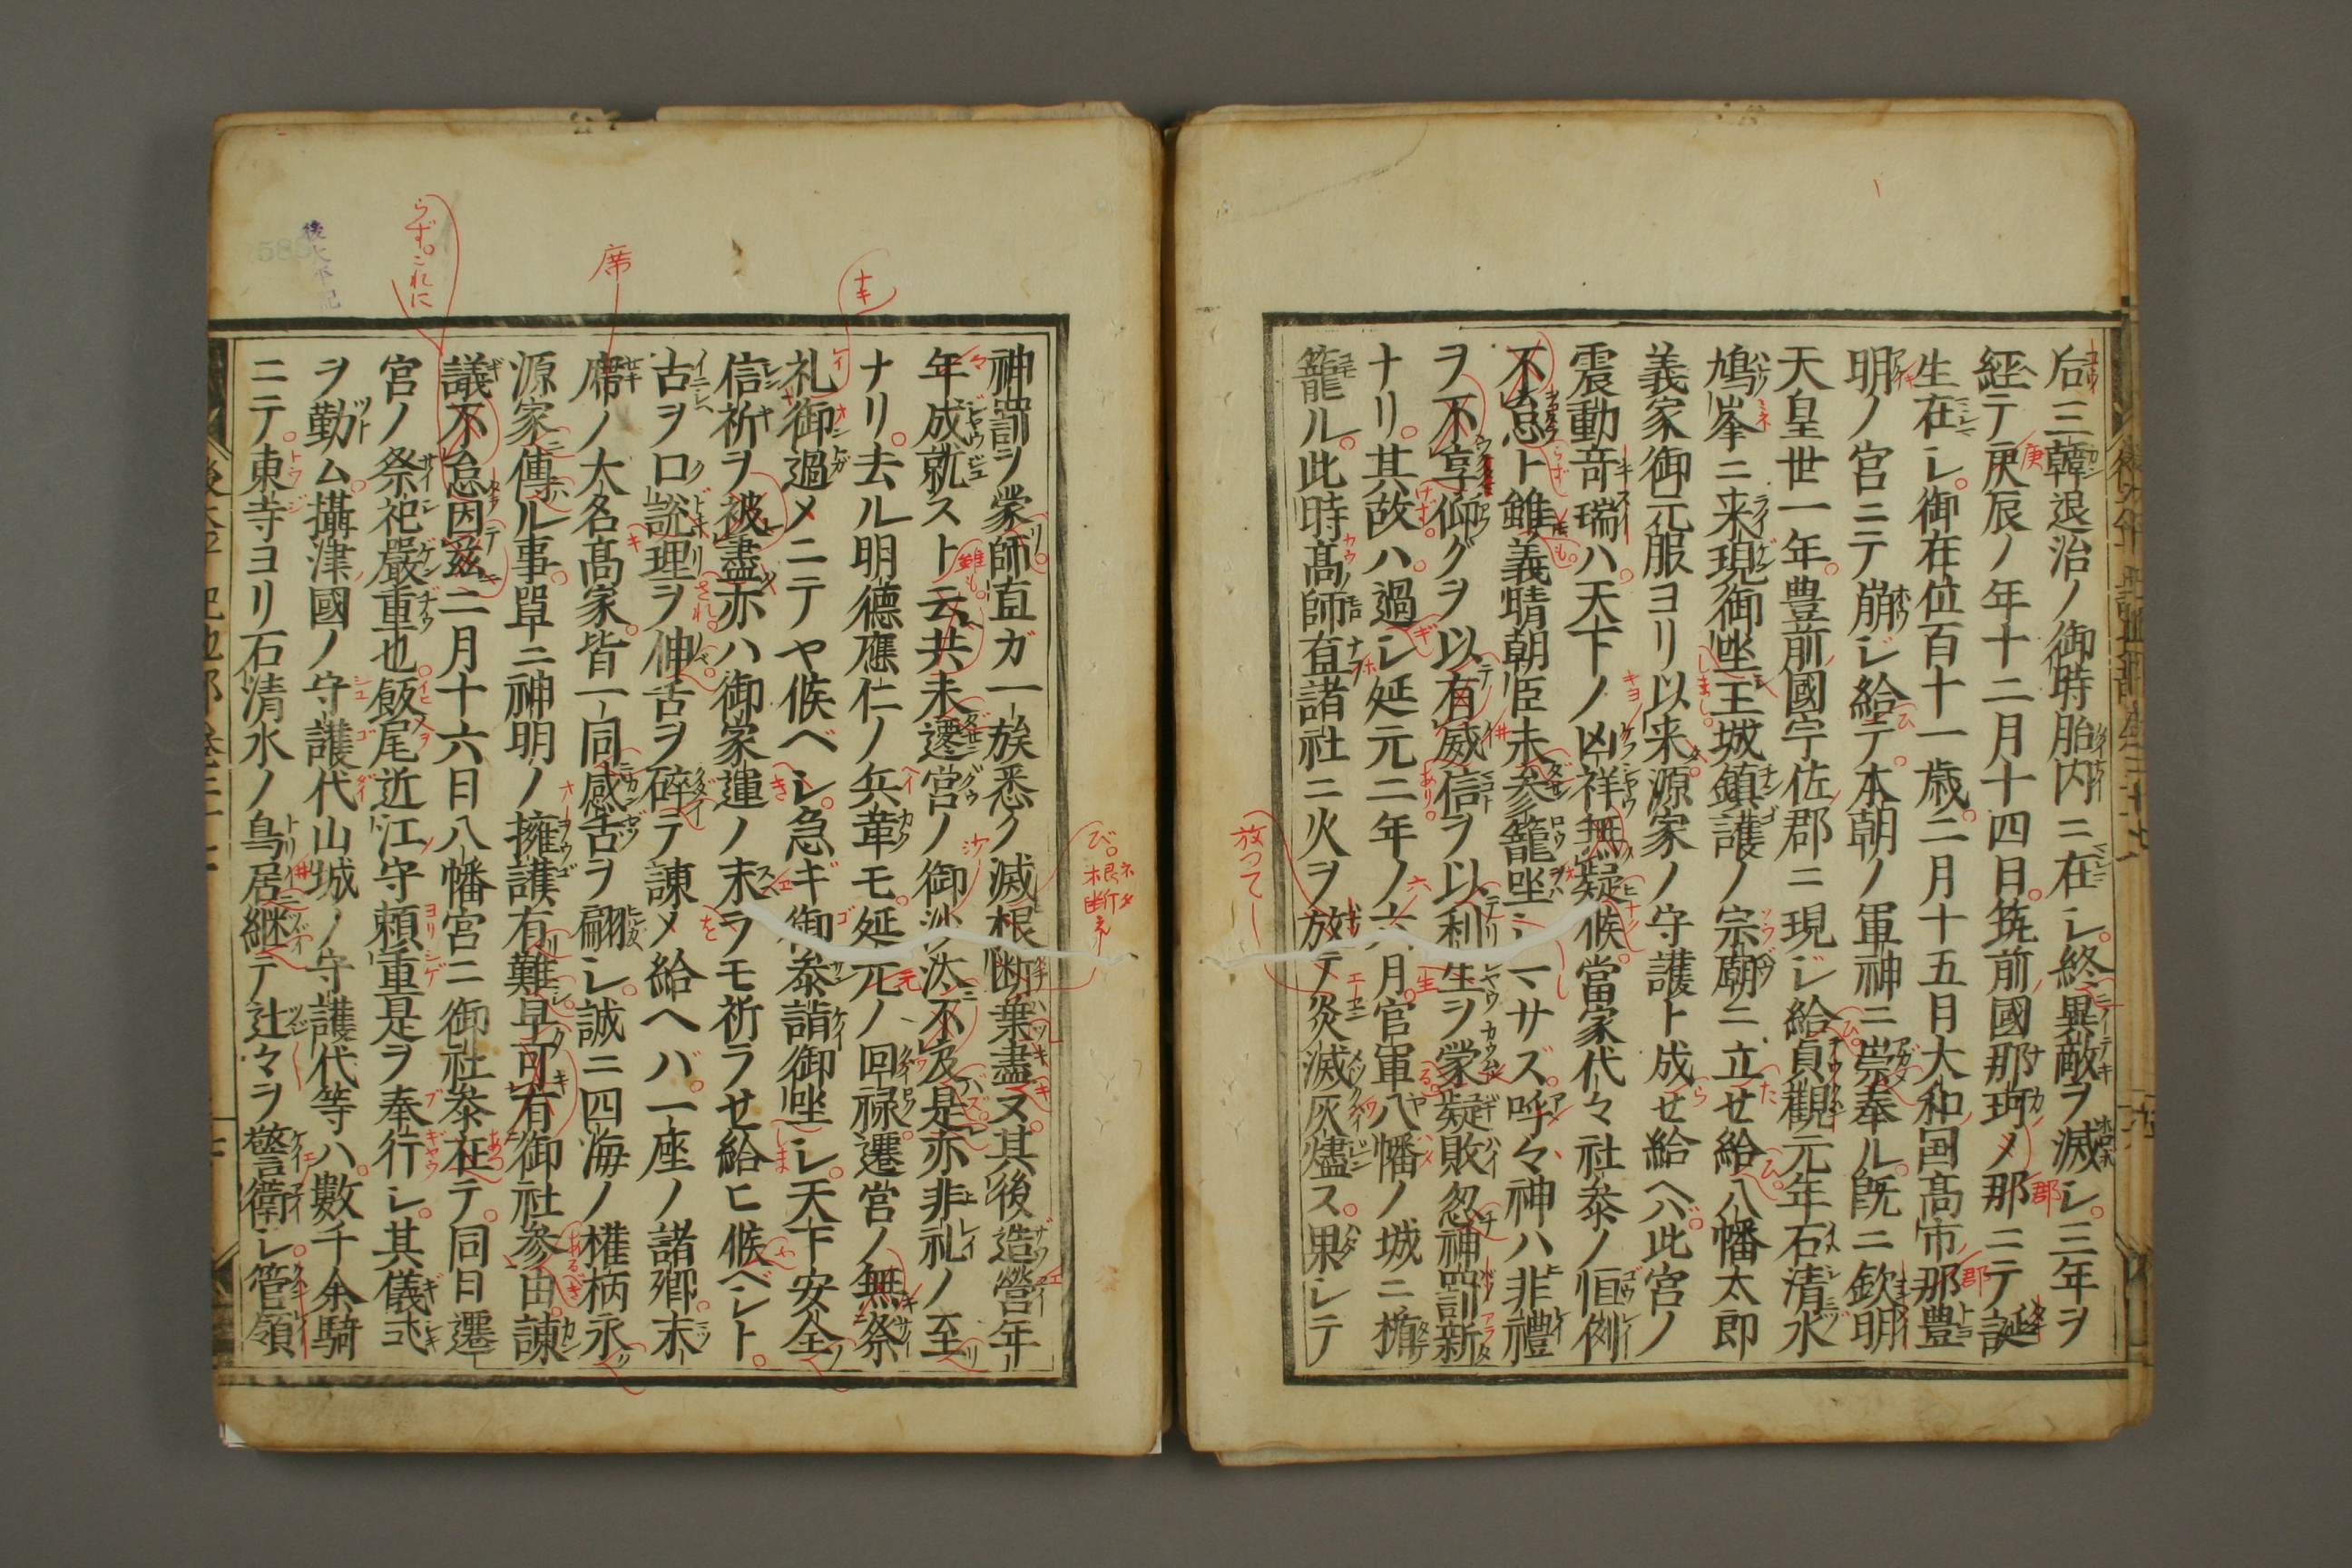 后三韓退治ノ御時胎内ニ在シ終異敵ヲ滅シ三年ヲ
経テ庚辰ノ年十二月十四日筑前國那珂メ那ニテ誕
生在シ御在位百十一歳二月十五日大和国高市那豊
明ノ宮ニテ崩ジ給テ本朝ノ軍神ニ崇奉ル既ニ欽明
天皇世一年豊前國宇佐郡ニ現ジ給貞觀元年石清水
鳩峯ニ来現御坐王城鎮護ノ宗廟ニ立せ給八幡太郎
義家御元服ヨリ以来源家ノ守護ト成せ給ヘバ此宮ノ
震動奇瑞ハ天下ノ凶祥無疑候當家代々社参ノ恒例
不怠ト雖義晴朝臣未参籠坐シマサズ呼々神ハ非禮
ヲ不享仰グヲ以有威信ヲ以利生ヲ蒙疑敗忽神罰新
ナリ其故ハ過シ延元二年ノ六月官軍八幡ノ城ニ楯
籠ル此時高師直諸社ニ火ヲ放テ灸滅灰燼ス果シテ
神罰ヲ蒙師直ガ一族悉ク滅根断棄盡ヌ其後造營年
年成就スト云共未遷宮ノ御沙汰不及是亦非礼ノ至
ナリ去ル明徳應仁ノ兵革モ延元ノ回禄遷宮ノ無祭
礼御過メニテヤ候ベシ急ギ御参詣御坐シ天下安全
信祈ヲ被盡亦ハ御家運ノ末ラモ祈ラせ給ヒ候ベシト
古ヲ口説理ヲ伸舌ヲ碎テ諫メ給ヘバ一座ノ諸卿末
席ノ大名高家皆一同感舌ヲ翩シ誠ニ四海ノ權柄永
源家傳ル事單ニ神明ノ擁護有難早可有御社参由諫
議不怠因茲二月十六日八幡宮ニ御社参在テ同日遷
宮ノ祭祀嚴重也飯尾近江守頼重是ヲ奉行シ其儀式
ヲ勤ム攝津國ノ守護代山城ノ守護代等ハ數千余騎
ニテ東寺ヨリ石清水ノ鳥居継テ辻々ヲ警衛シ管領
放つて
び。根断え
ナキ
席
らず。これに
後太平記